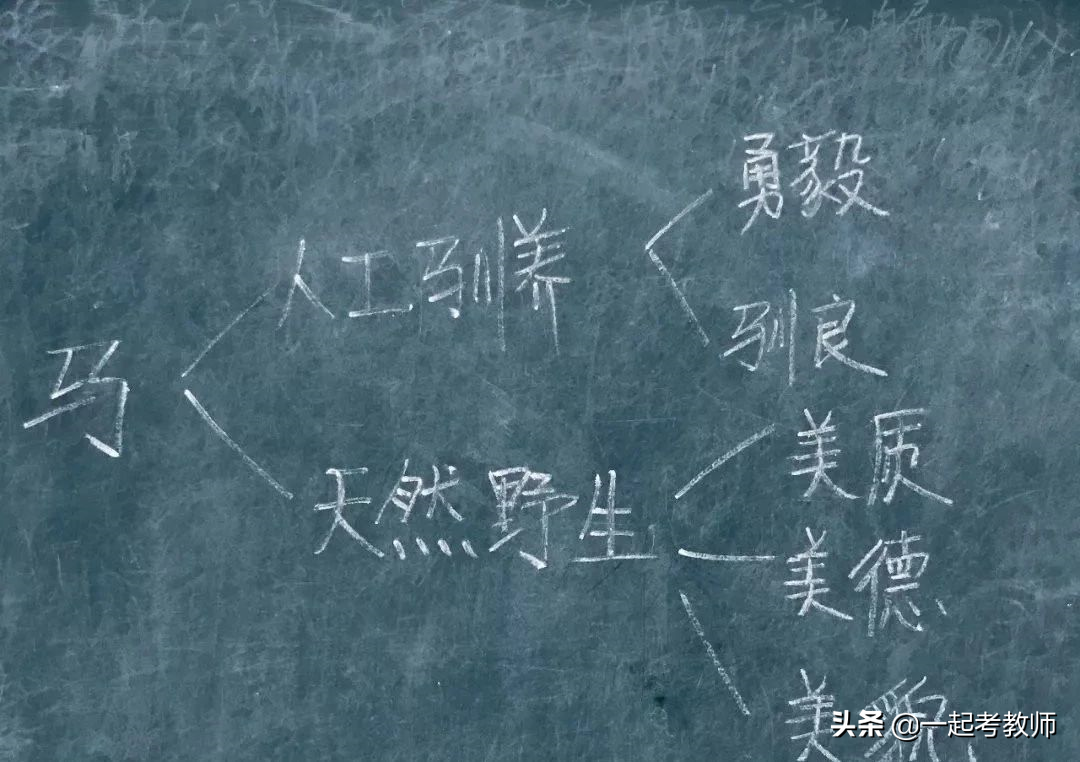 勇毅
人工驯养
驯良
马
美质
天然野生
美德
美貌
头条 @一起考教师